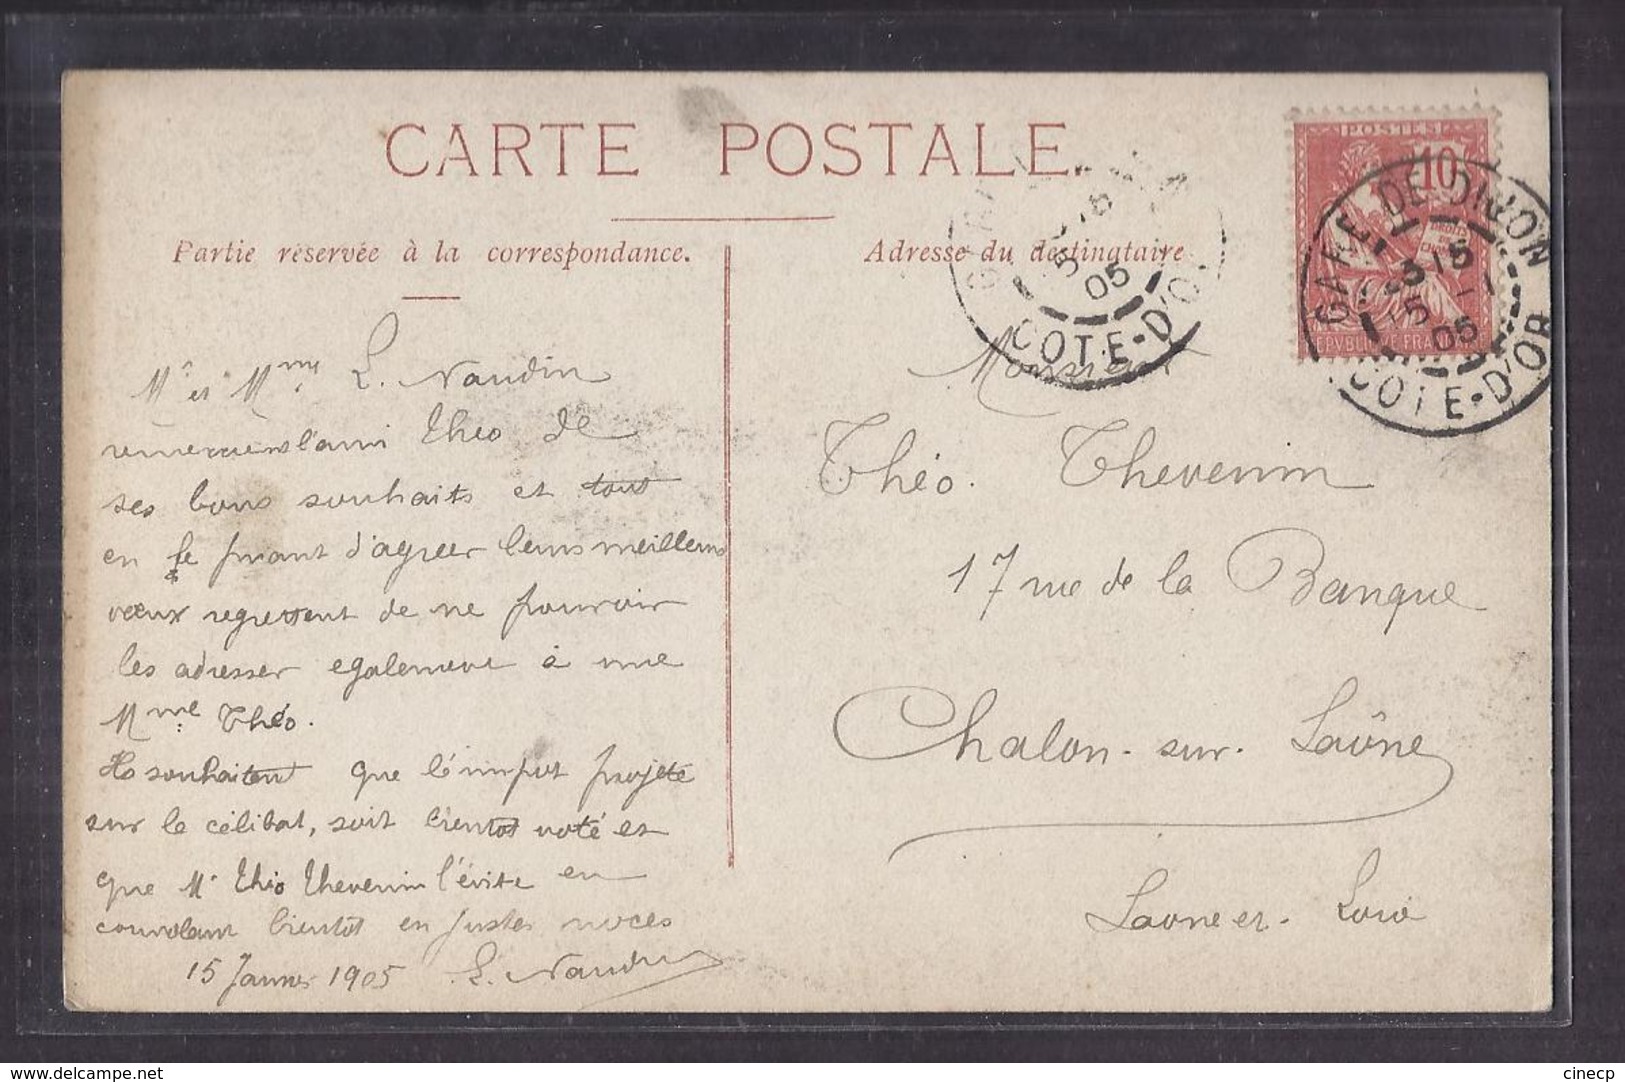 CARTE POSTALE
Partie réservée à la correspondance.
Adresse du destinataire
POSTES
10
DROITS
DE
REPVBLIQUE FRANÇAISE
GARE DE DIJON
3 15
15 - 1
05
COTE-D'OR
05
COTE-D'OR
Mr et Mme L. Naudin
remercient l'ami Théo de
ses bons souhaits et tout
en le priant d'agréer leurs meilleurs
vœux regrettent de ne pouvoir
les adresser egalement à une
Mme Théo.
Ils souhaitent que l'impot projeté
sur le célibat, soit bientot voté et
que Mr Théo Thevenin l'évite en
convolant bientôt en justes noces
15 Janvier 1905 L. Naudin
Monsieur
Théo. Thevenin
17 rue de la Banque
Chalon-sur-Saône
Saone et-Loire
delcampe.net
cinecp